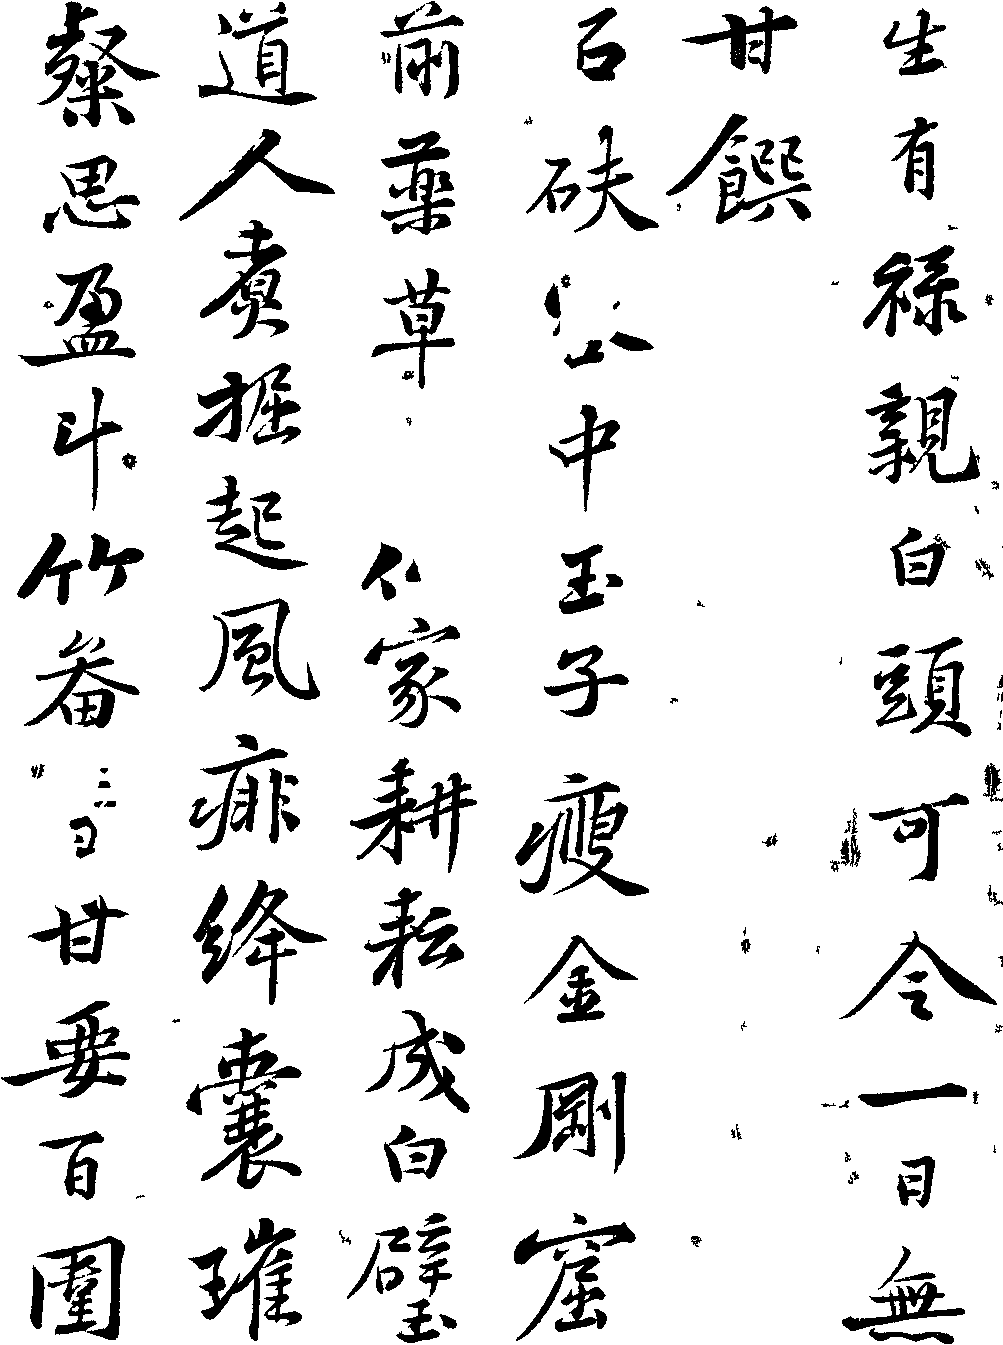 生有祿親白頭可令一日無
甘饌
石砆谷中玉子瘦金剛窟
前藥草仙家耕耘成白璧
道人煮掘起風痱絳囊璀
粲思盈斗竹畚甘要百圍